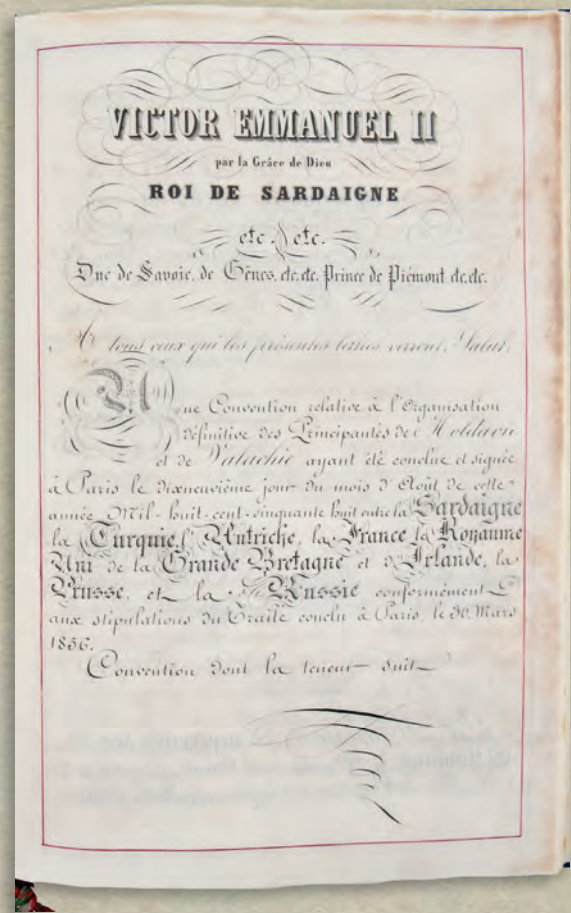 VICTOR EMMANUEL II
par la Grâce de Dieu
ROI DE SARDAIGNE
etc. etc.
Duc de Savoie, de Gênes, etc. etc. Prince de Piémont etc. etc.
A tous ceux qui les présentes lettres verront, Salut,
Une Convention relative à l'Organisation
définitive des Principautés de Moldavie
et de Valachie ayant été conclue et signée
à Paris le dixneuvième jour du mois d'Août de cette
année Mil-huit-cent-cinquante huit entre la Sardaigne
la Turquie, l'Autriche, la France, le Royaume
Uni de la Grande Bretagne et d'Irlande, la
Prusse, et la Russie conformément
aux stipulations du Traité conclu à Paris, le 30 Mars
1856.
Convention dont la teneur suit